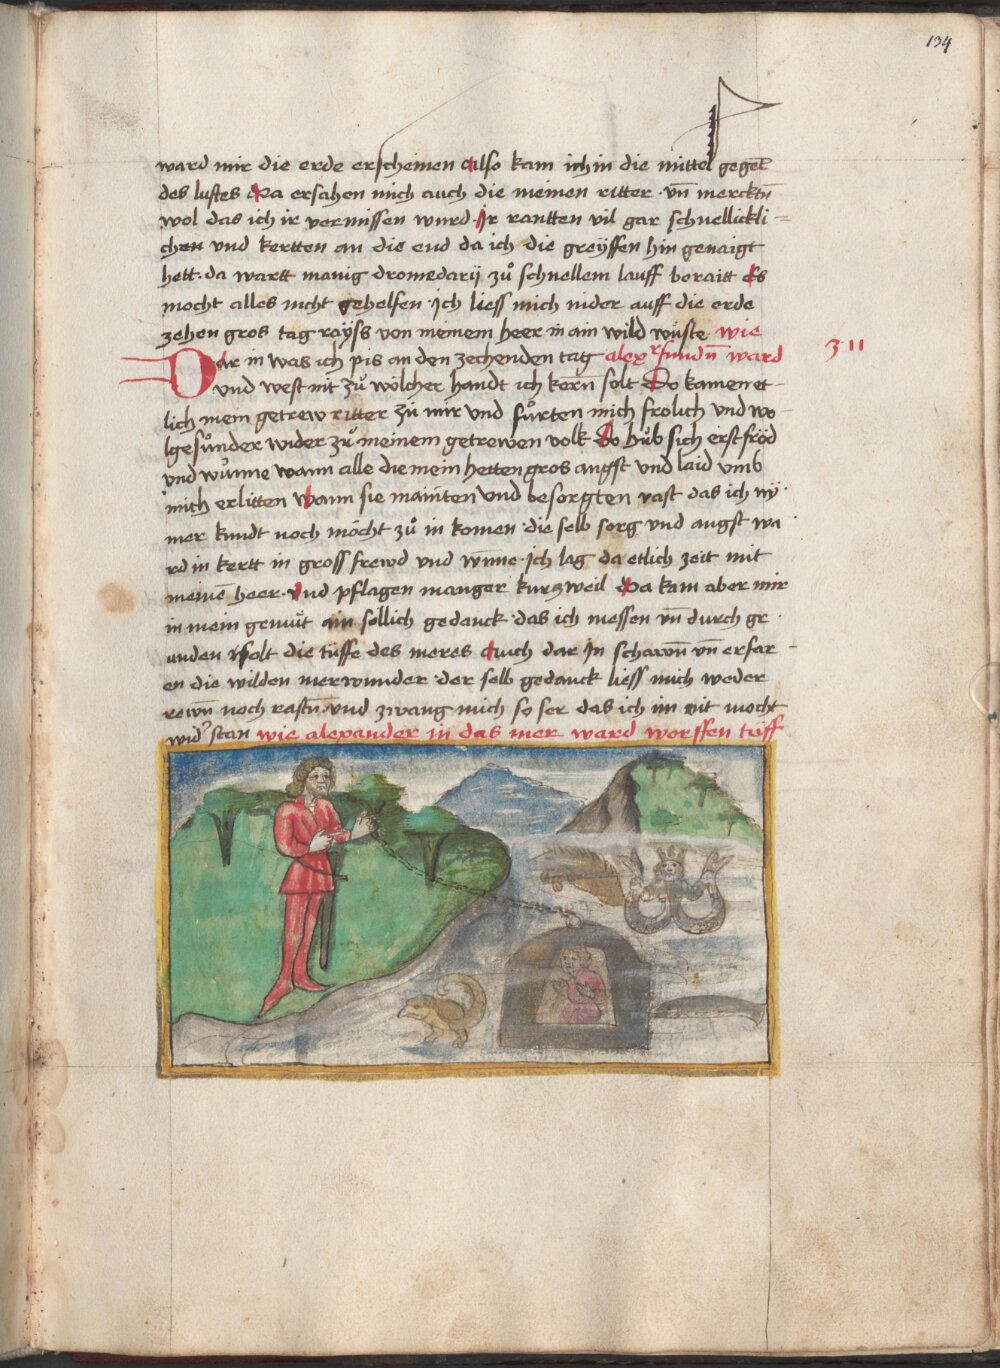 134
ward mir die erde erscheinen also kam ich in die mittel gegēt
des luftes Da ersahen mich auch die meinen ritter · vn̄ mercktn̄
wol das ich ir vermissen wurd · Jr rantten vil gar schnellickli=
chen vnd kertten an die end da ich die greyffen hin genaigt
hett · da wartt manig dromedarij zů schnellem lauff beraitt es
mocht alles nicht gehelfen · ich liess mich nider auff die erde
zehen gros tag rayss von meinem heer in ain wild wüste wie
Dar in was ich pis an den zechenden tag alexr̄ fundn̄ ward
311
vnd west nit zů wölcher handt ich kern̄ solt Do kamen et-
lich mein getrew ritter zů mir vnd fůrten mich frolich vnd wo-
lgesůnder wider zů meinem getrewen volk Do hůb sich erst fröd
vnd wůnne wann alle die mein hetten gros angst vnd laid vmb
mich erlitten wann sie mainten vnd besorgten vast das ich ny·
mer kundt noch möcht zů in komen · die selb sorg vnd angst wa
rd in kertt in gross frewd vnd wn̄ne · ich lag da etlich zeit mit
meinē heer · vnd pflagen manger kurzweil Da kam aber mir
in mein gemüt ain sollich gedanck · das ich messen vn̄ durch gr·
unden wolt die tüffe des meres auch dar Jn schawn̄ vn̄ erfar-
en die wilden merwunder · der selb gedanck liess mich weder
rewn̄ noch rastn̄ · vnd zwang mich so ser das ich im nit mocht
wid' stan wie alexander in das mer ward worffen tüff